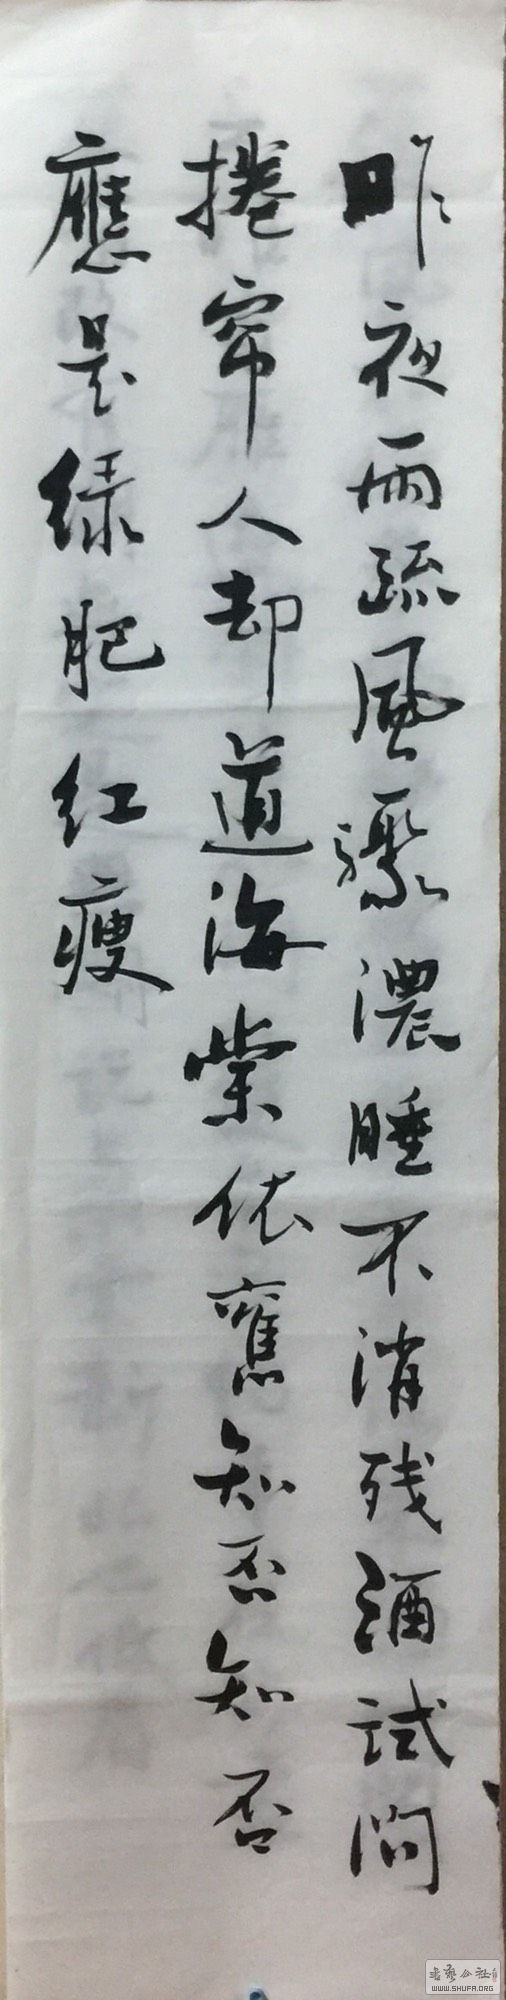 昨夜雨疏風驟濃睡不消残酒試問
捲帘人却道海棠依舊知否知否
應是绿肥红瘦
書藝公社
WWW.SHUFA.ORG